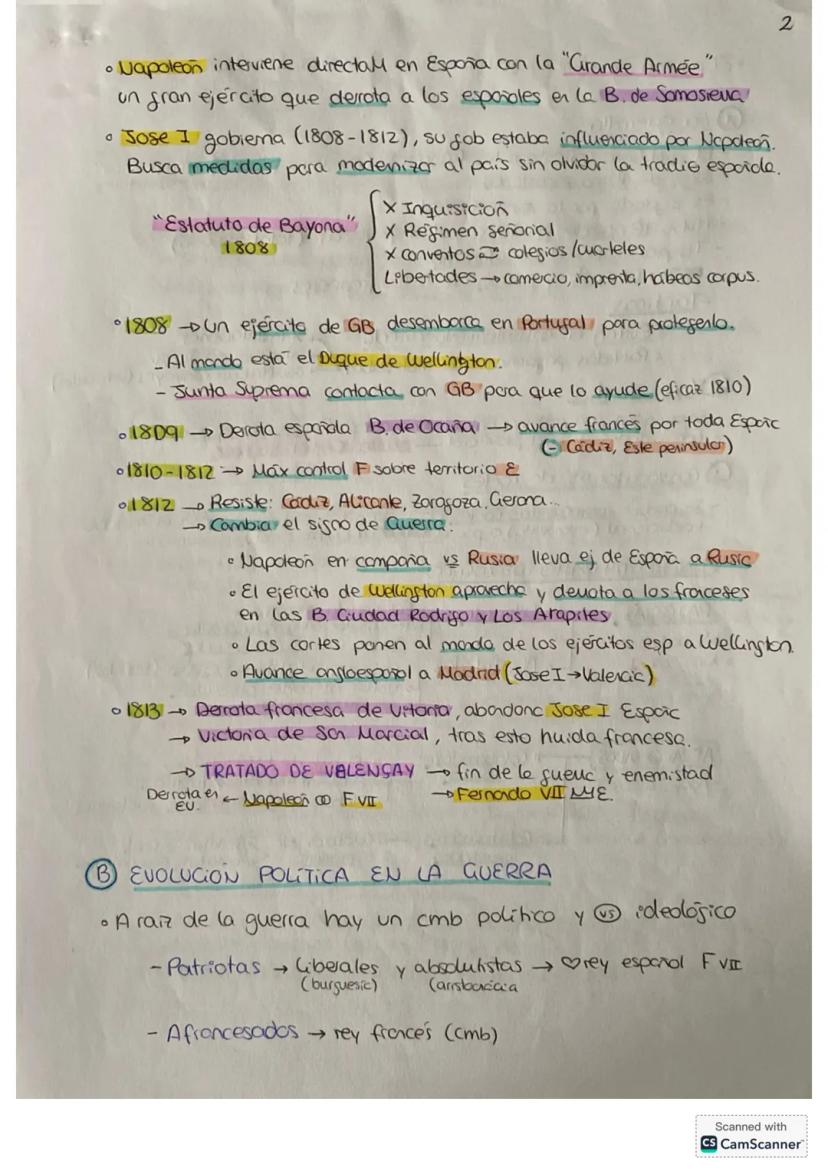 2
• Napoleón interviene directaM en España con la "Grande Armée"
un gran ejército que derrota a los españoles en la B. de Somosierra
• Jose I gobierna (1808-1812), su gob estaba influenciado por Napoleón.
Busca medidas para modernizar al país sin olvidar la tradic española.
"Estatuto de Bayona"
1808
X Inquisición
X Régimen señorial
X conventos ⇄ colegios/cuarteles
Libertades → comercio, imprenta, habeas corpus.
• 1808 → Un ejército de GB desembarca en Portugal para protegerlo.
- Al mando está el Duque de Wellington.
- Junta Suprema contacta con GB para que lo ayude (eficaz 1810)
• 1809 → Derrota española B. de Ocaña → avance francés por toda España
(- Cádiz, Este peninsular)
• 1810-1812 → Máx control F sobre territorio E
• 1812 → Resiste: Cádiz, Alicante, Zaragoza, Gerona...
→ Cambia el signo de Guerra:
• Napoleón en campaña vs Rusia lleva ej de España a Rusia
• El ejército de Wellington aprovecha y derrota a los franceses
en las B Ciudad Rodrigo y Los Arapiles.
• Las cortes ponen al mando de los ejércitos esp a Wellington.
• Avance angloespañol a Madrid (Jose I → Valencia)
• 1813 → Derrota francesa de Vitoria, abandona Jose I España
→ Victoria de San Marcial, tras esto huida francesa.
→ TRATADO DE VALENÇAY → fin de la guerra y enemistad
Derrota en EU. ← Napoleón ∞ F VII → Fernando VII
B EVOLUCIÓN POLÍTICA EN LA GUERRA
• A raíz de la guerra hay un cmb político y vs ideológico
- Patriotas → Liberales y absolutistas → ♡ rey español F VII
(burguesía) (aristocracia
- Afrancesados → rey francés (cmb)
Scanned with
CS CamScanner